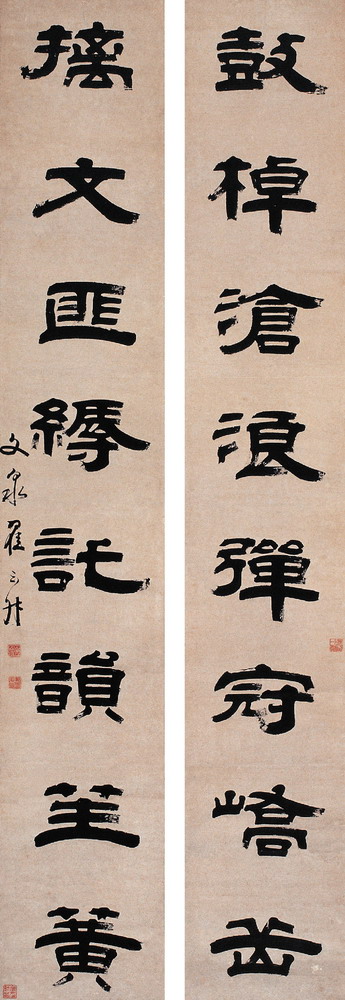 鼓棹滄浪彈冠嶠岳
摛文匪縟託韻笙簧
文泉翟云升